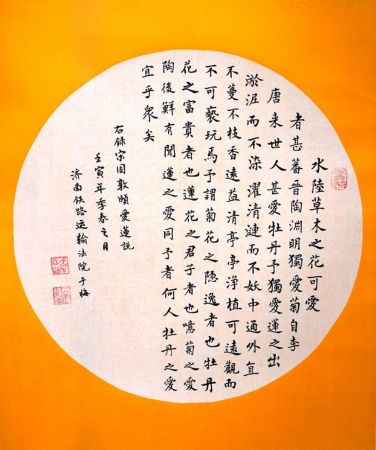 水陸草木之花可愛
者甚蕃晉陶淵明獨愛菊自李
唐来世人甚愛牡丹予獨愛蓮之出
淤泥而不染濯清漣而不妖中通外直
不蔓不枝香遠益清亭亭淨植可遠觀而
不可褻玩焉予謂菊花之隐逸者也牡丹
花之富貴者也蓮花之君子者也噫菊之愛
陶後鮮有聞蓮之愛同予者何人牡丹之愛
宜乎衆矣
右錄宋周敦頤愛蓮説
壬寅年季春之月
济南铁路运輸法院于梅